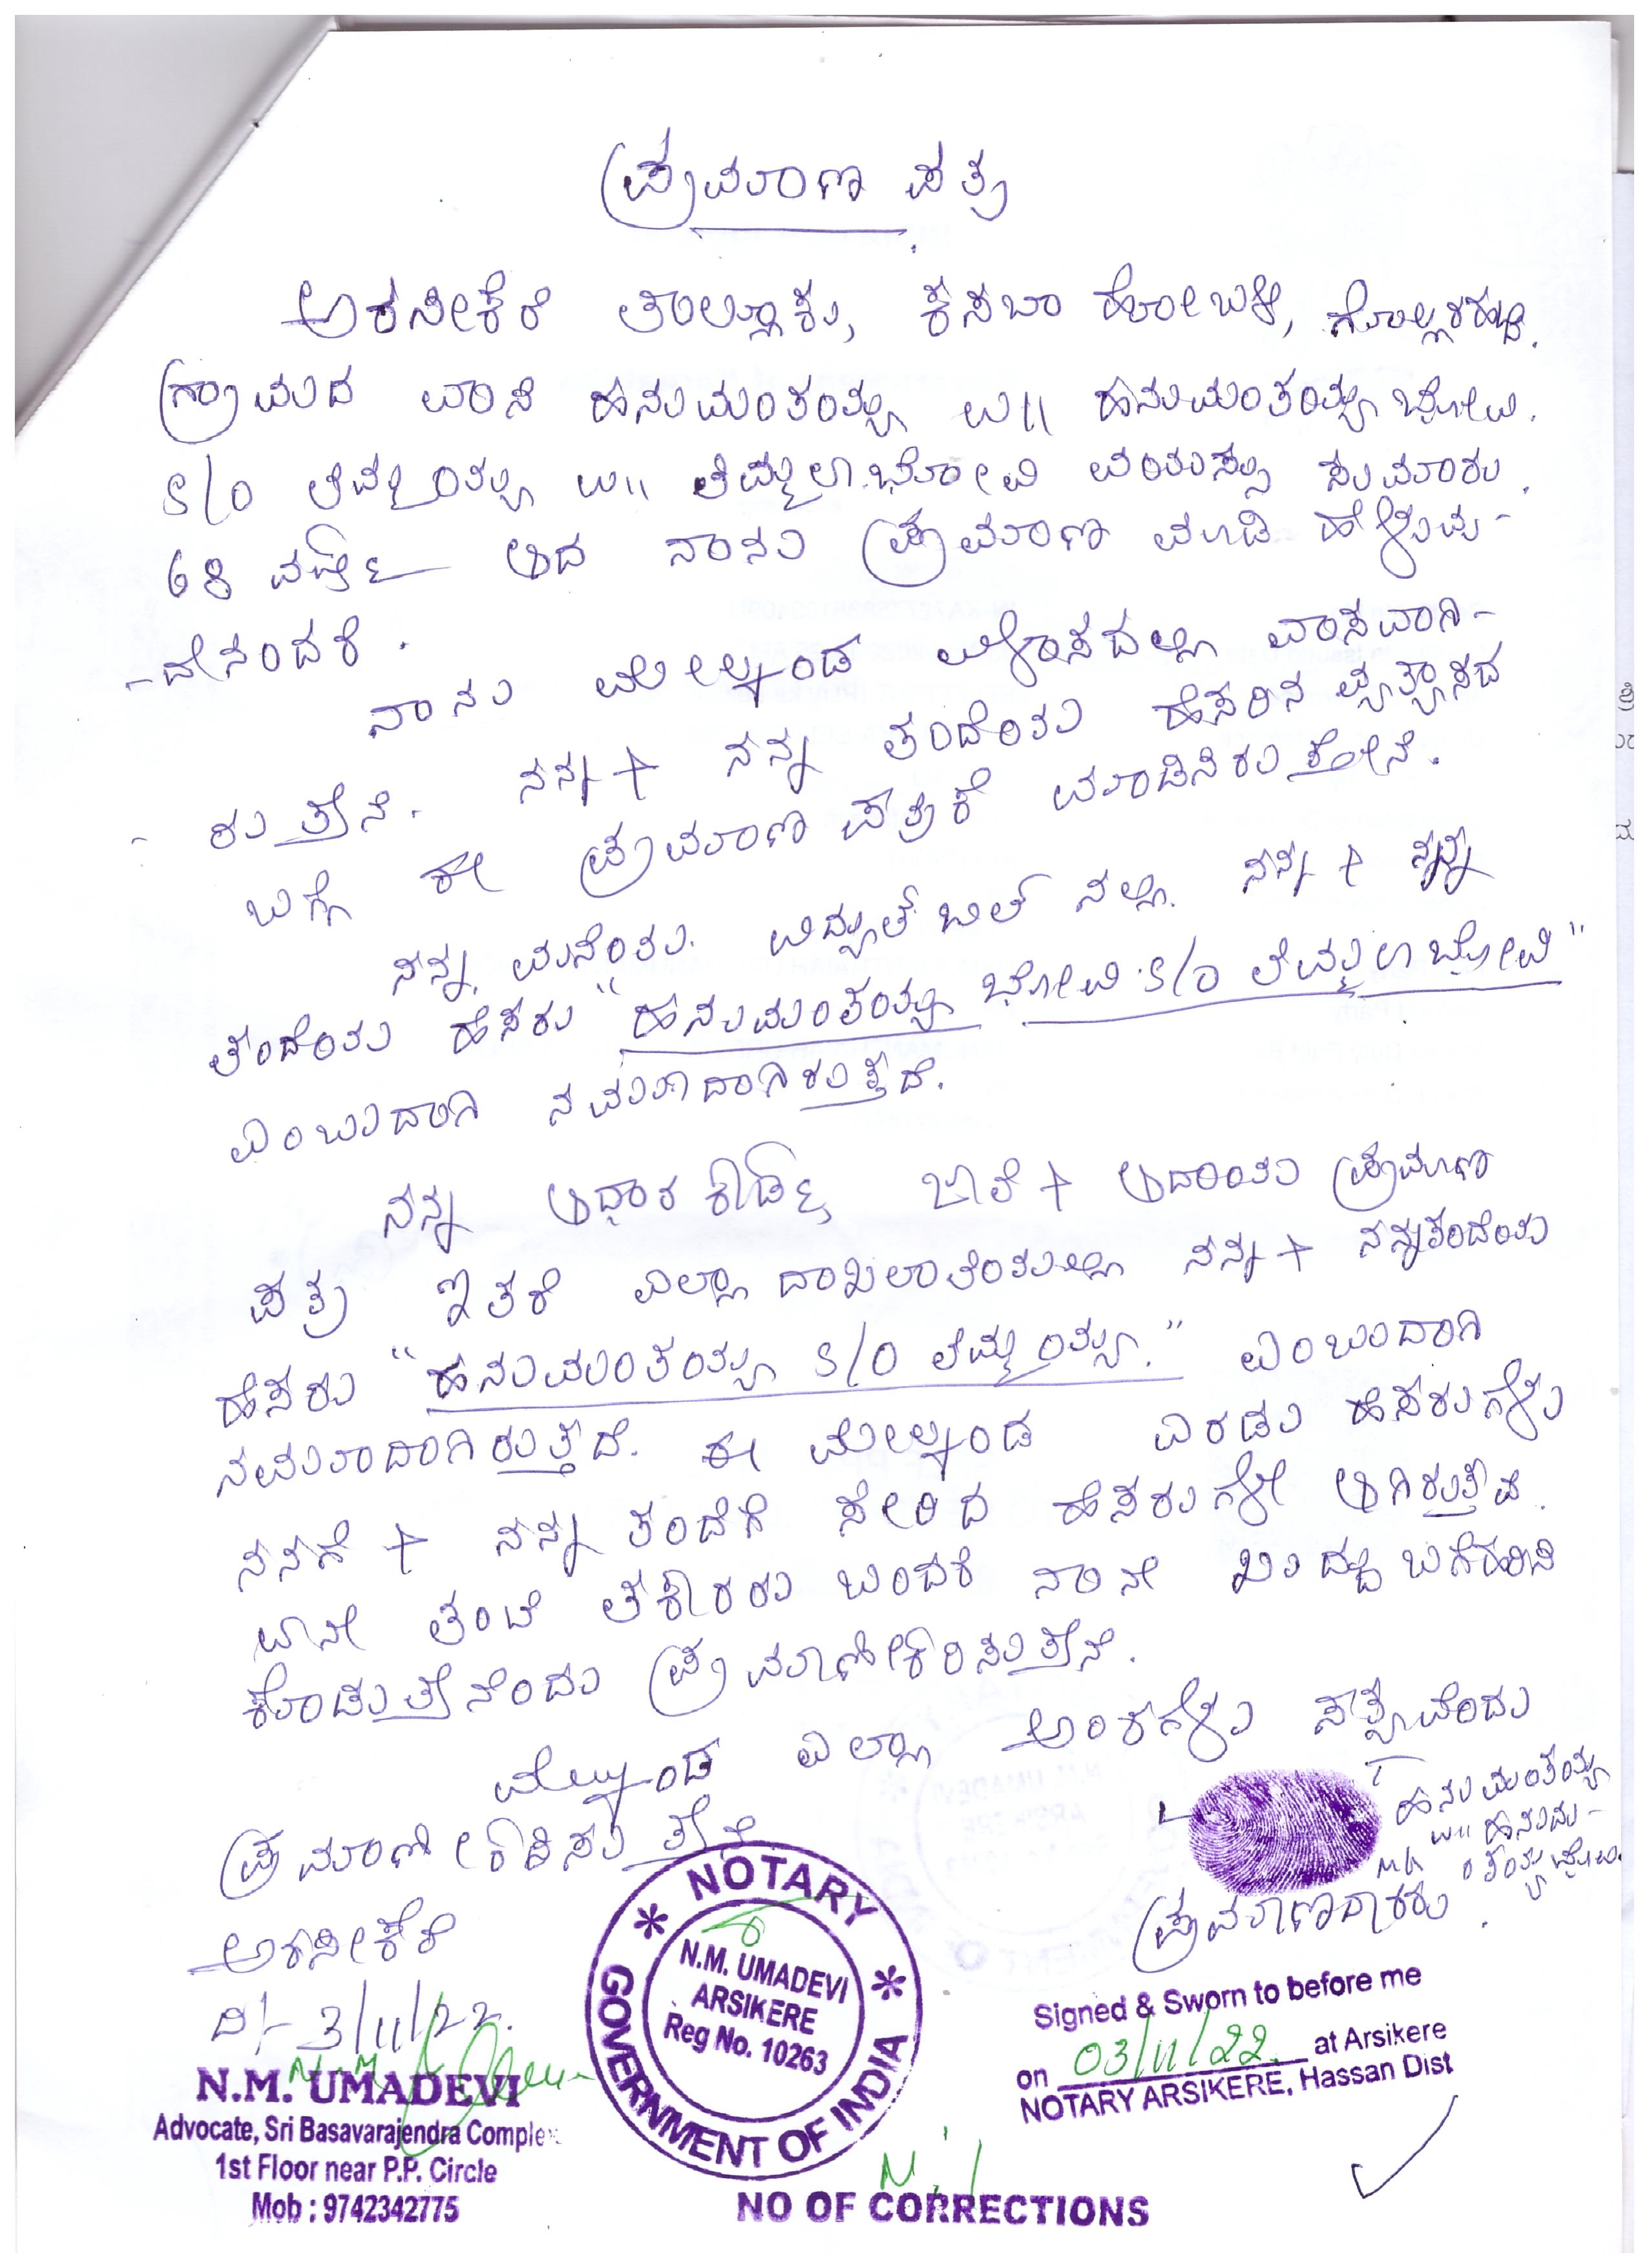 ಪ್ರಮಾಣ ಪತ್ರ
ಅರಸೀಕೆರೆ ತಾಲ್ಲೂಕು, ಕಸಬಾ ಹೋಬಳಿ, ಗೊಲ್ಲರಹಟ್ಟಿ
ಗ್ರಾಮದ ವಾಸಿ ಹನುಮಂತಯ್ಯ ಉ|| ಹನುಮಂತಯ್ಯಭೋವಿ
S/O ತಿಮ್ಮಯ್ಯ ಉ|| ತಿಮ್ಮಲಾಭೋವಿ ವಯಸ್ಸು ಸುಮಾರು
68 ವರ್ಷ ಆದ ನಾನು ಪ್ರಮಾಣ ಮಾಡಿ ಹೇಳುವು-
-ದೇನಂದರೆ.
ನಾನು ಮೇಲ್ಕಂಡ ವಿಳಾಸದಲ್ಲಿ ವಾಸವಾಗಿ-
- ರುತ್ತೇನೆ. ನನ್ನ + ನನ್ನ ತಂದೆಯ ಹೆಸರಿನ ವ್ಯತ್ಯಾಸದ
ಬಗ್ಗೆ ಈ ಪ್ರಮಾಣ ಪತ್ರಕೆ ಮಾಡಿಸಿರುತ್ತೇನೆ.
ನನ್ನ ಮನೆಯ ವಿದ್ಯುತ್ ಬಿಲ್ ನಲ್ಲಿ ನನ್ನ + ನನ್ನ
ತಂದೆಯ ಹೆಸರು "ಹನುಮಂತಯ್ಯ ಭೋವಿ S/O ತಿಮ್ಮಲಾಭೋವಿ"
ಎಂಬುದಾಗಿ ನಮೂದಾಗಿರುತ್ತದೆ.
ನನ್ನ ಆಧಾರ ಕಾರ್ಡ್ ಜಾತಿ + ಆದಾಯ ಪ್ರಮಾಣ
ಪತ್ರ ಇತರೆ ಎಲ್ಲಾ ದಾಖಲಾತಿಯಲ್ಲಿ ನನ್ನ + ನನ್ನತಂದೆಯ
ಹೆಸರು "ಹನುಮಂತಯ್ಯ S/O ತಿಮ್ಮಯ್ಯ." ಎಂಬುದಾಗಿ
ನಮೂದಾಗಿರುತ್ತದೆ. ಈ ಮೇಲ್ಕಂಡ ಎರಡು ಹೆಸರುಗಳು
ನನಗೆ + ನನ್ನ ತಂದೆಗೆ ಸೇರಿದ ಹೆಸರುಗಳೇ ಆಗಿರುತ್ತವೆ.
ಏನೇ ತಂಟೆ ತಕರಾರು ಬಂದರೆ ನಾನೇ ಖುದ್ದು ಬಗೆಹರಿಸಿ
ಕೊಡುತ್ತೇನೆಂದು ಪ್ರಮಾಣೀಕರಿಸುತ್ತೇನೆ.
ಮೇಲ್ಕಂಡ ಎಲ್ಲಾ ಅಂಶಗಳು ಸತ್ಯವೆಂದು
ಪ್ರಮಾಣೀಕರಿಸುತ್ತೇನೆ
ಹನುಮಂತಯ್ಯ
ಉ|| ಹನುಮ-
ಂತಯ್ಯಭೋವಿ
ಪ್ರಮಾಣದಾರರು
ಅರಸೀಕೆರೆ
ದಿ/- 3/11/22.
N.M. UMADEVI
Advocate, Sri Basavarajendra Complex
1st Floor near P.P. Circle
Mob : 9742342775
NOTARY
N.M. UMADEVI
ARSIKERE
Reg No. 10263
GOVERNMENT OF INDIA
Signed & Sworn to before me
on 03/11/22 at Arsikere
NOTARY ARSIKERE, Hassan Dist
Nil
NO OF CORRECTIONS